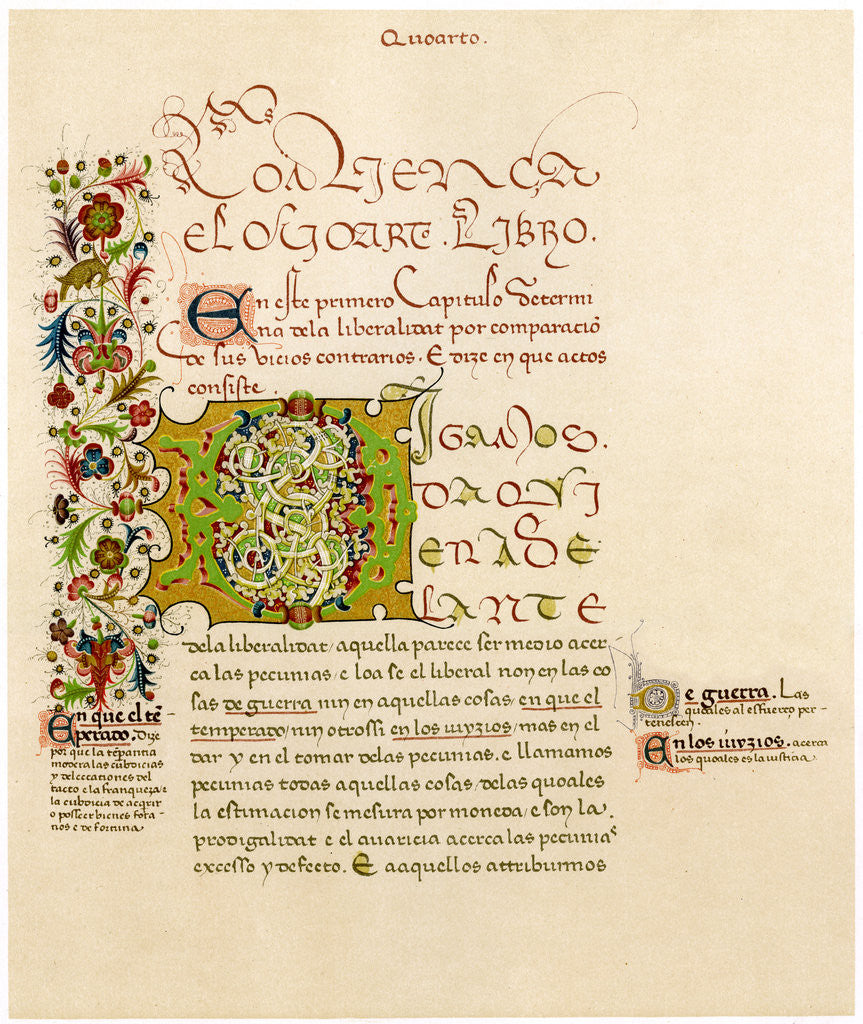 Quoarto.
Comiença
el Quoarto. Libro.
En este primero Capitulo Determi
na dela liberalidat por comparació
de sus vicios contrarios. E dize en que actos
consiste.
Digamos.
daqui
enade
lante
dela liberalidat / aquella parece ser medio acer
ca las pecunias / e loa se el liberal non en las co
sas de guerra nin en aquellas cosas / en que el
temperado / nin otrossi en los iuyzios / mas en el
dar y en el tomar delas pecunias. e llamamos
pecunias todas aquellas cosas / delas quoales
la estimacion se mesura por moneda / e son la.
prodigalidat e el auaricia acerca las pecunias
excesso y defecto. E aaquellos attribuimos
En que el tē-
perado. Dize
por que la tēpança
modera las cubdicias
y delectaciones del
tacto e la franqueza /
la cubdicia de aqrir
o posseer bienes fora-
nos e de fortuna
De guerra. Las
quoales al esfuerço per-
tenescen.
En los iuyzios. acerca
los quoales es la iusticia.